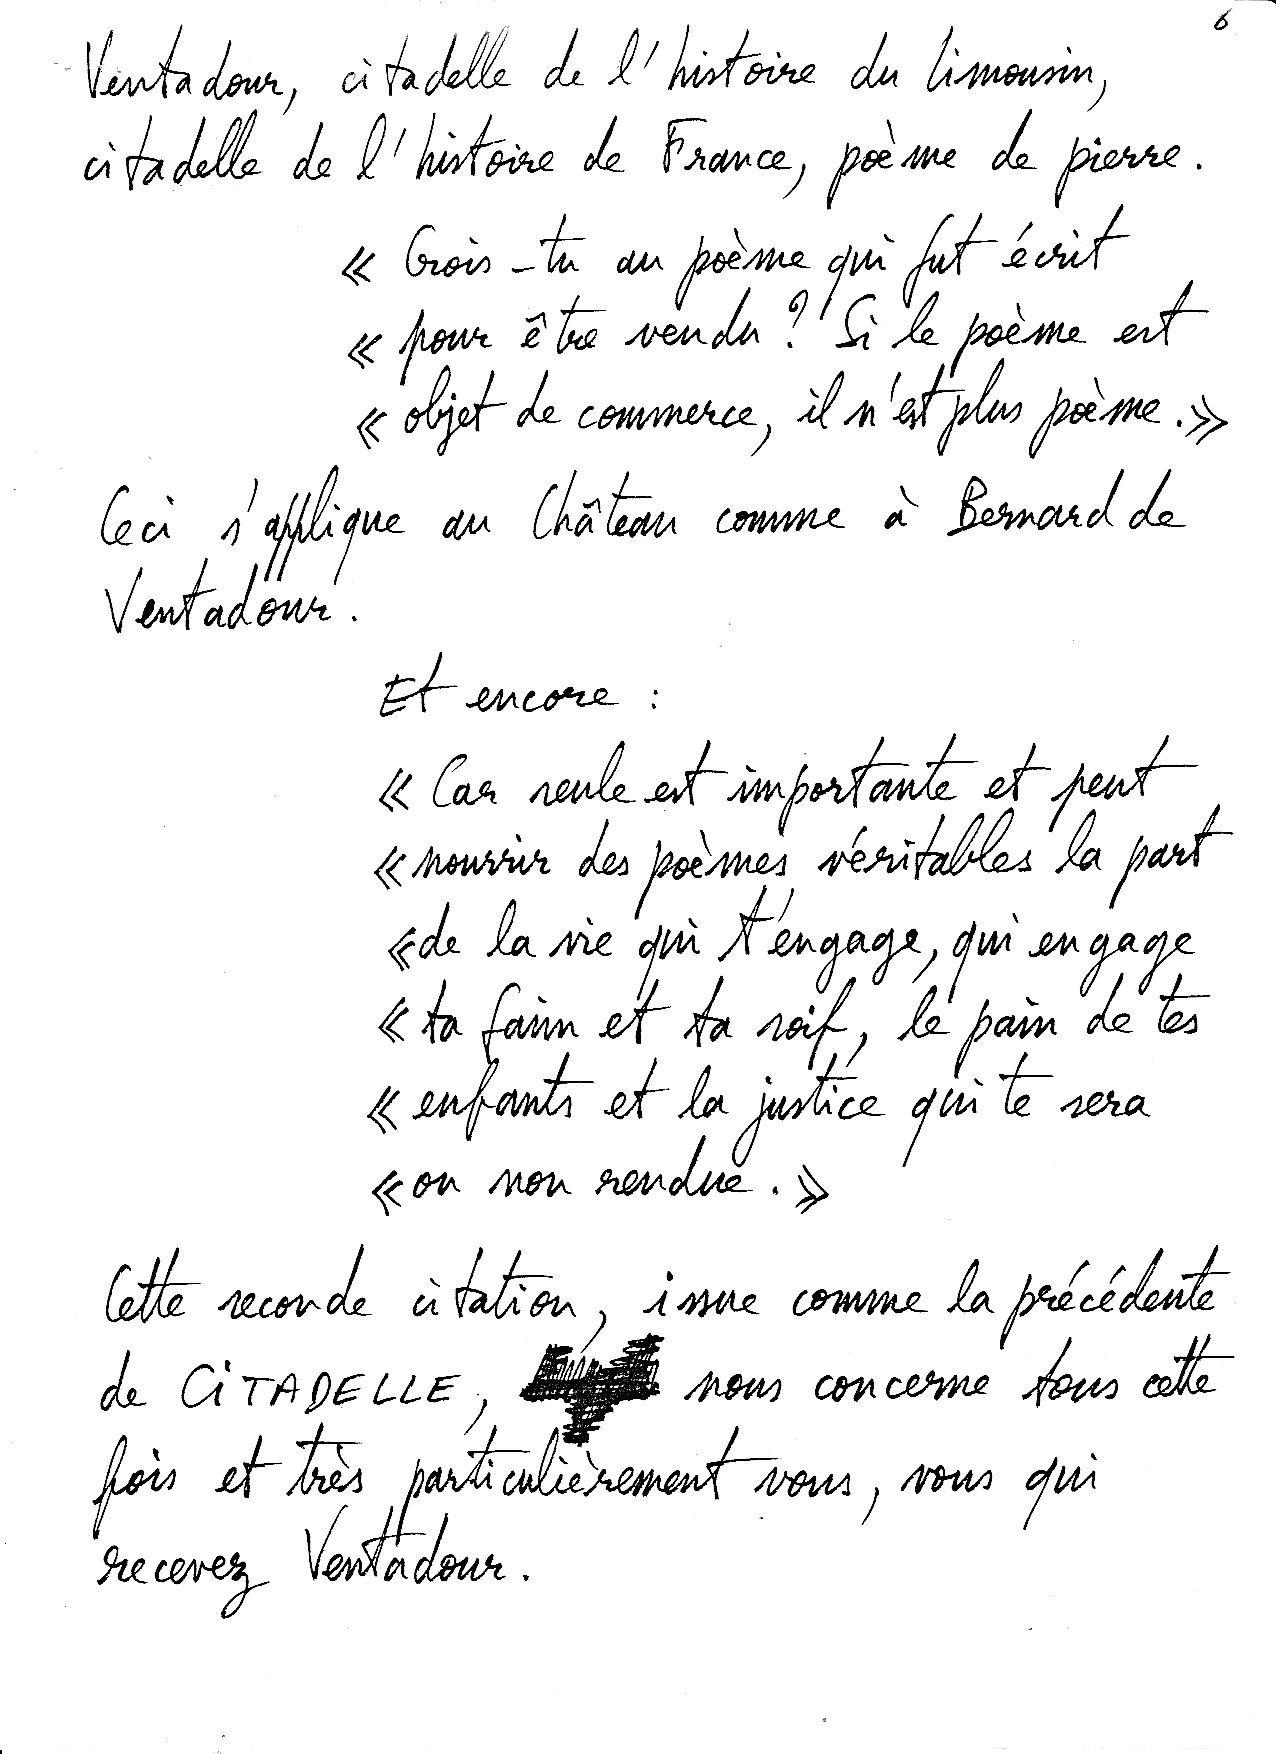 6
Ventadour, citadelle de l'histoire du Limousin,
citadelle de l'histoire de France, poème de pierre.
« Crois-tu au poème qui fut écrit
« pour être vendu ? Si le poème est
« objet de commerce, il n'est plus poème. »
Ceci s'applique au Château comme à Bernard de
Ventadour.
Et encore :
« Car seule est importante et peut
« nourrir des poèmes véritables la part
« de la vie qui t'engage, qui engage
« ta faim et ta soif, le pain de tes
« enfants et la justice qui te sera
« ou non rendue. »
Cette seconde citation, issue comme la précédente
de CITADELLE, nous concerne tous cette
fois et très particulièrement vous, vous qui
recevez Ventadour.